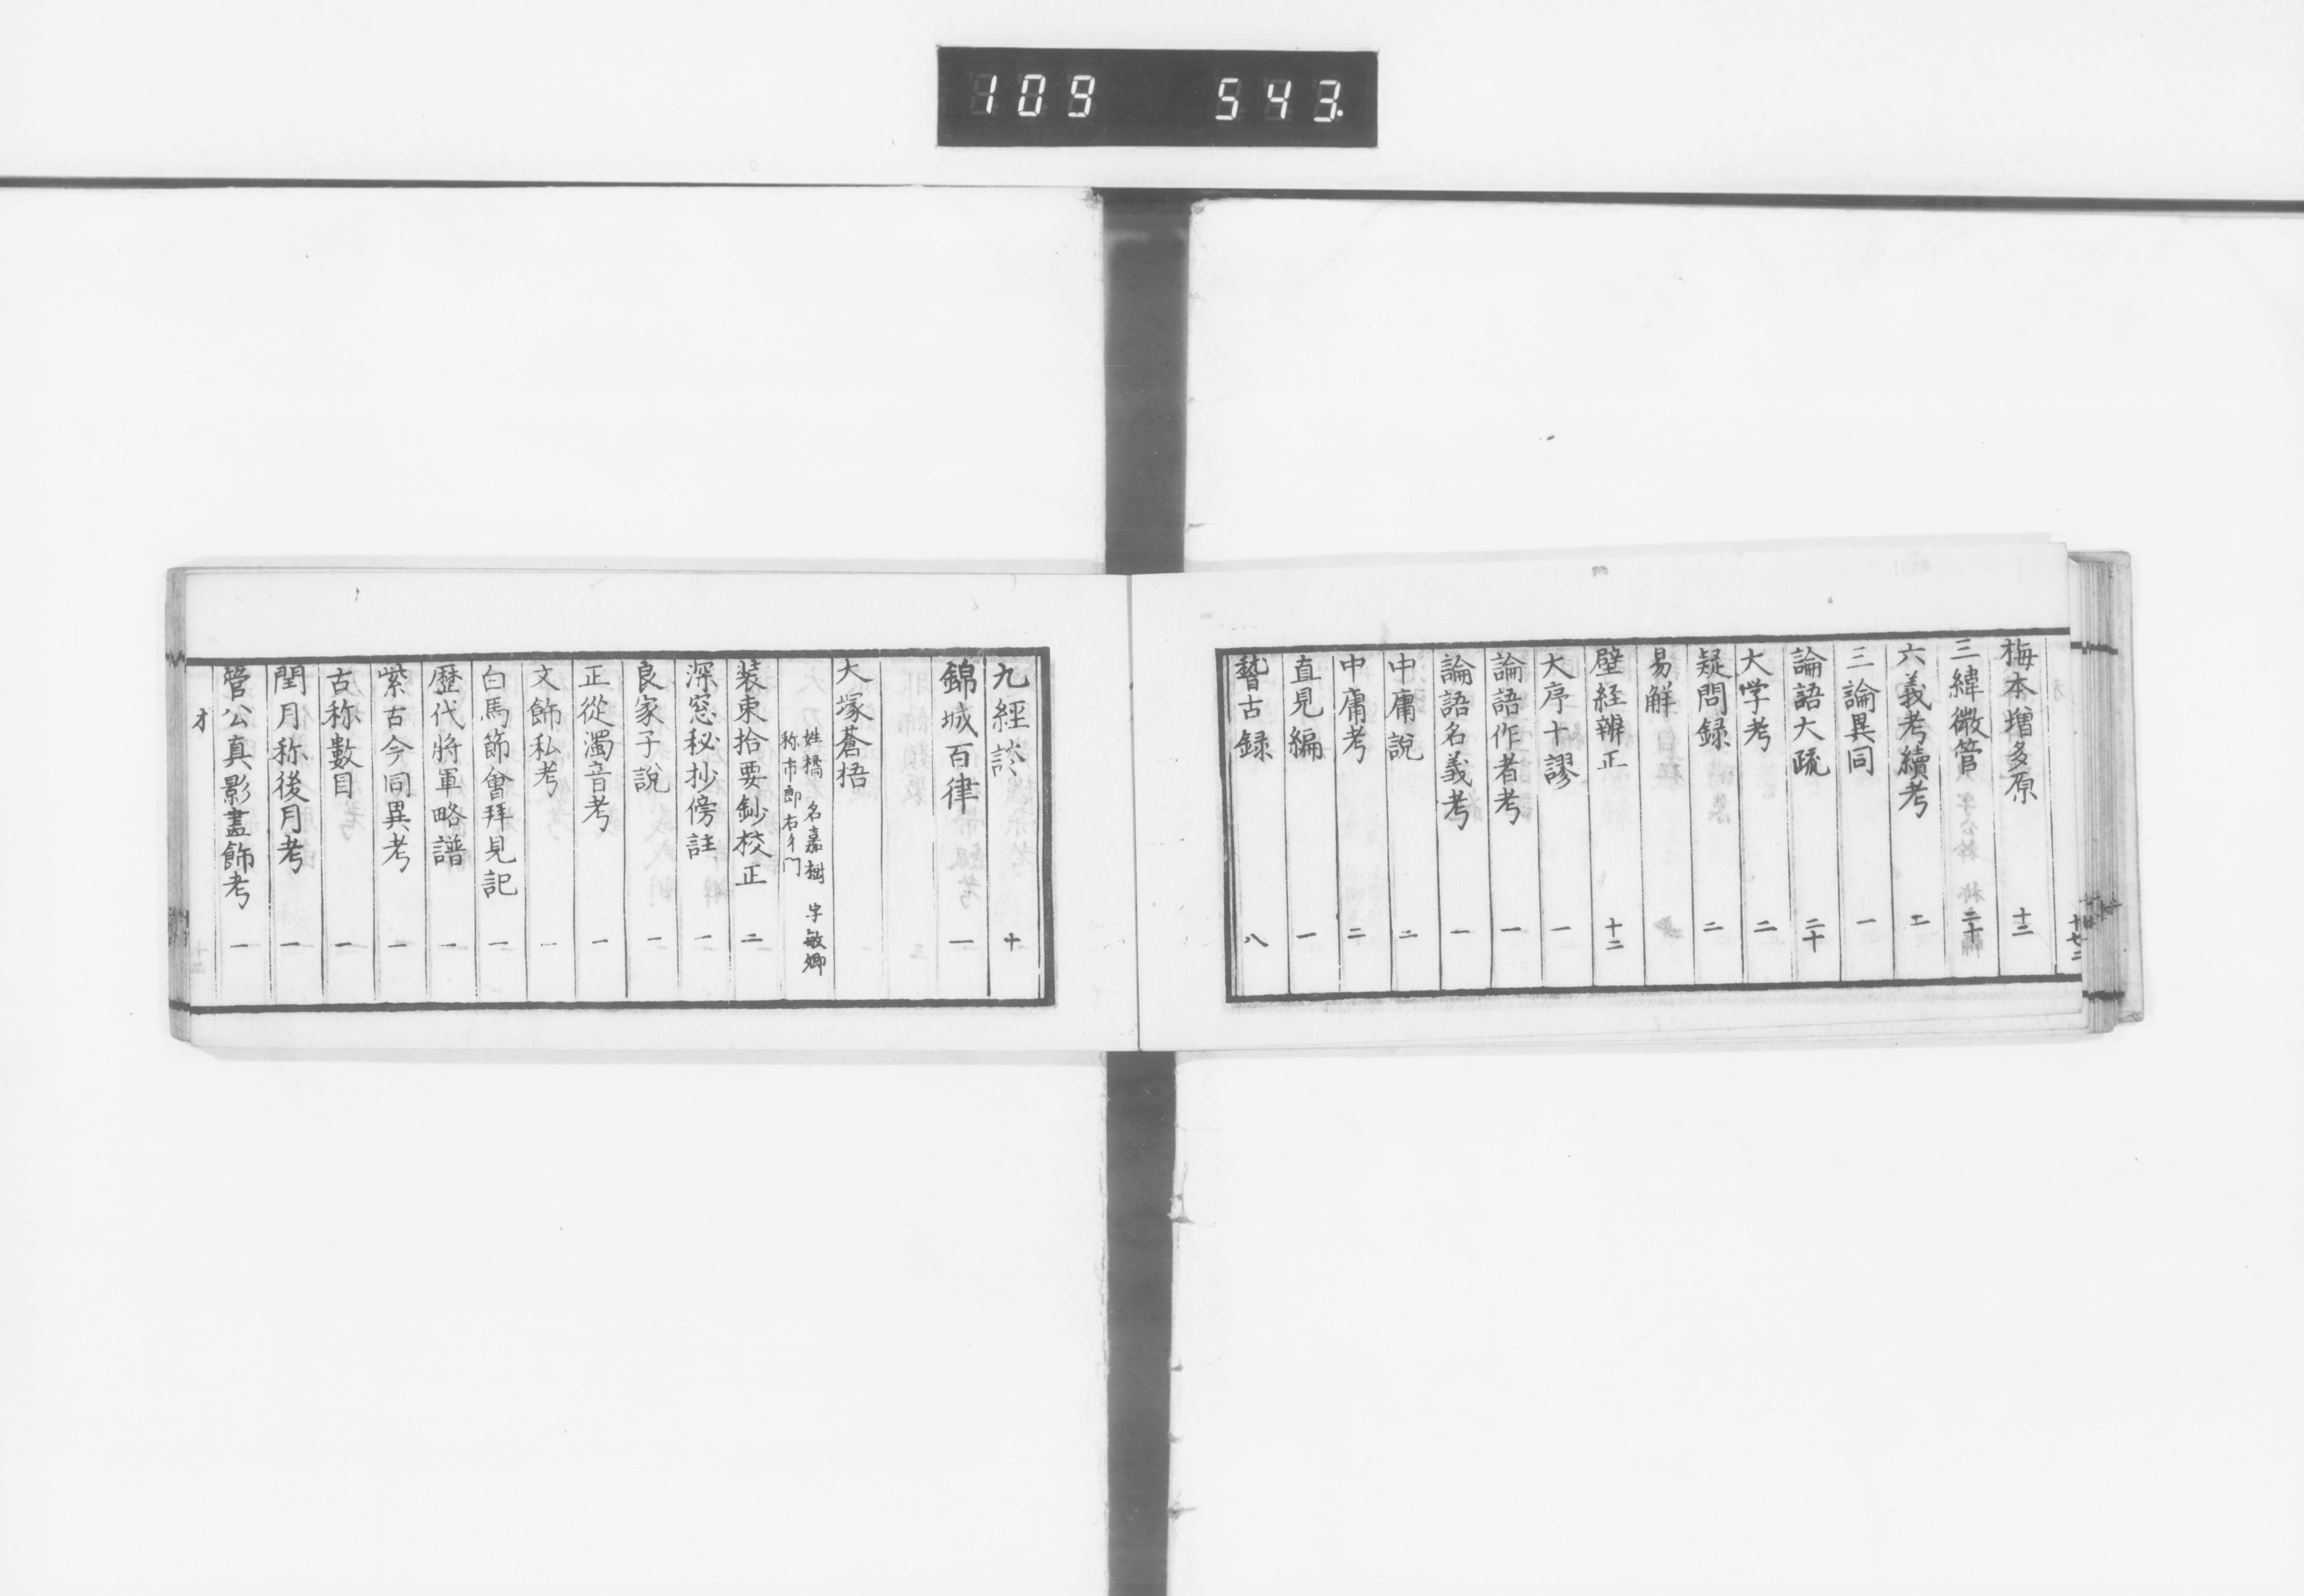 109 543
梅本増多原 十二
三緯微管 二十
六義考續考 二
三論異同 一
論語大疏 二十
大学考 二
疑問録 二
易解
壁経辨正 十二
大序十謬 一
論語作者考 一
論語名義考 一
中庸說 二
中庸考 二
直見編 一
稽古録 八
九經談 十
錦城百律 一
大塚蒼梧
姓橘 名嘉樹 字敏卿
称市郎右衛門
装束拾要鈔校正 二
深窓秘抄傍註 一
良家子說 一
正從濁音考 一
文飾私考 一
白馬節會拜見記 一
歷代將軍略譜 一
紫古今同異考 一
古称數目 一
閏月称後月考 一
菅公真影畫飾考 一
オ